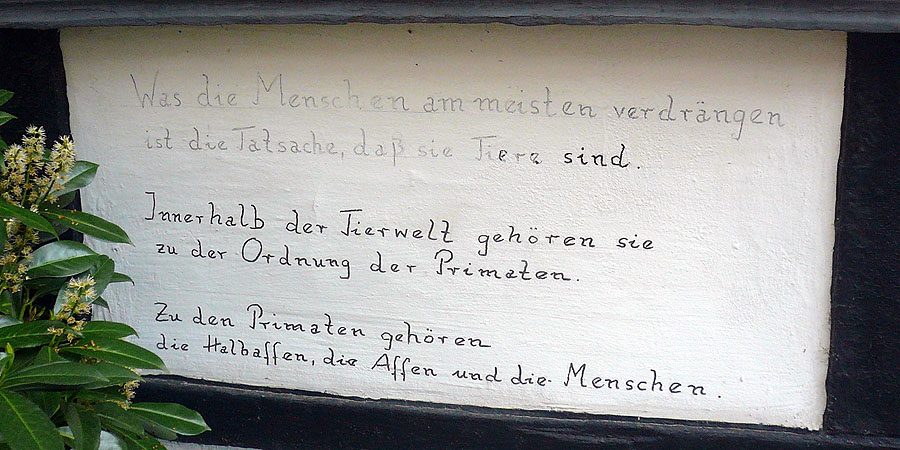 Was die Menschen am meisten verdrängen
ist die Tatsache, daß sie Tiere sind.
Innerhalb der Tierwelt gehören sie
zu der Ordnung der Primaten.
Zu den Primaten gehören
die Halbaffen, die Affen und die Menschen.